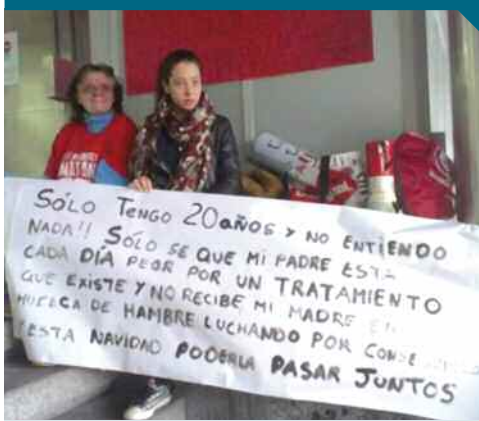 SÓLO TENGO 20 años Y NO ENTIENDO
NADA!! SÓLO SE QUE MI PADRE ESTA
CADA DÍA PEOR POR UN TRATAMIENTO
QUE EXISTE Y NO RECIBE MI MADRE EN
HUELGA DE HAMBRE LUCHANDO POR
ESTA NAVIDAD PODERLA PASAR JUNTOS